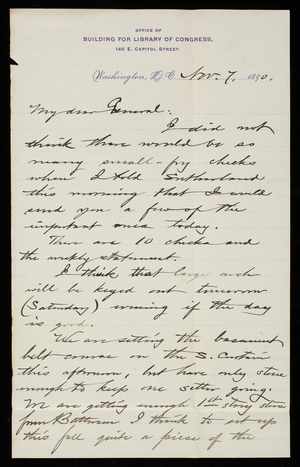 OFFICE OF
BUILDING FOR LIBRARY OF CONGRESS,
145 E. CAPITOL STREET.
Washington, D.C. Nov. 7, 1890.
My dear General:
I did not
think there would be so
many small-fry checks
when I told Sutherland
this morning that I would
send you a few of the
important ones today.
There are 10 checks and
the weekly statement.
I think that large arch
will be keyed out tomorrow
(Saturday) evening if the day
is good.
We are setting the basement
belt course on the S. Curtain
this afternoon, but have only stone
enough to keep one setter going.
We are getting enough 1st story stone
from I think to set up
this fall quite a piece of the